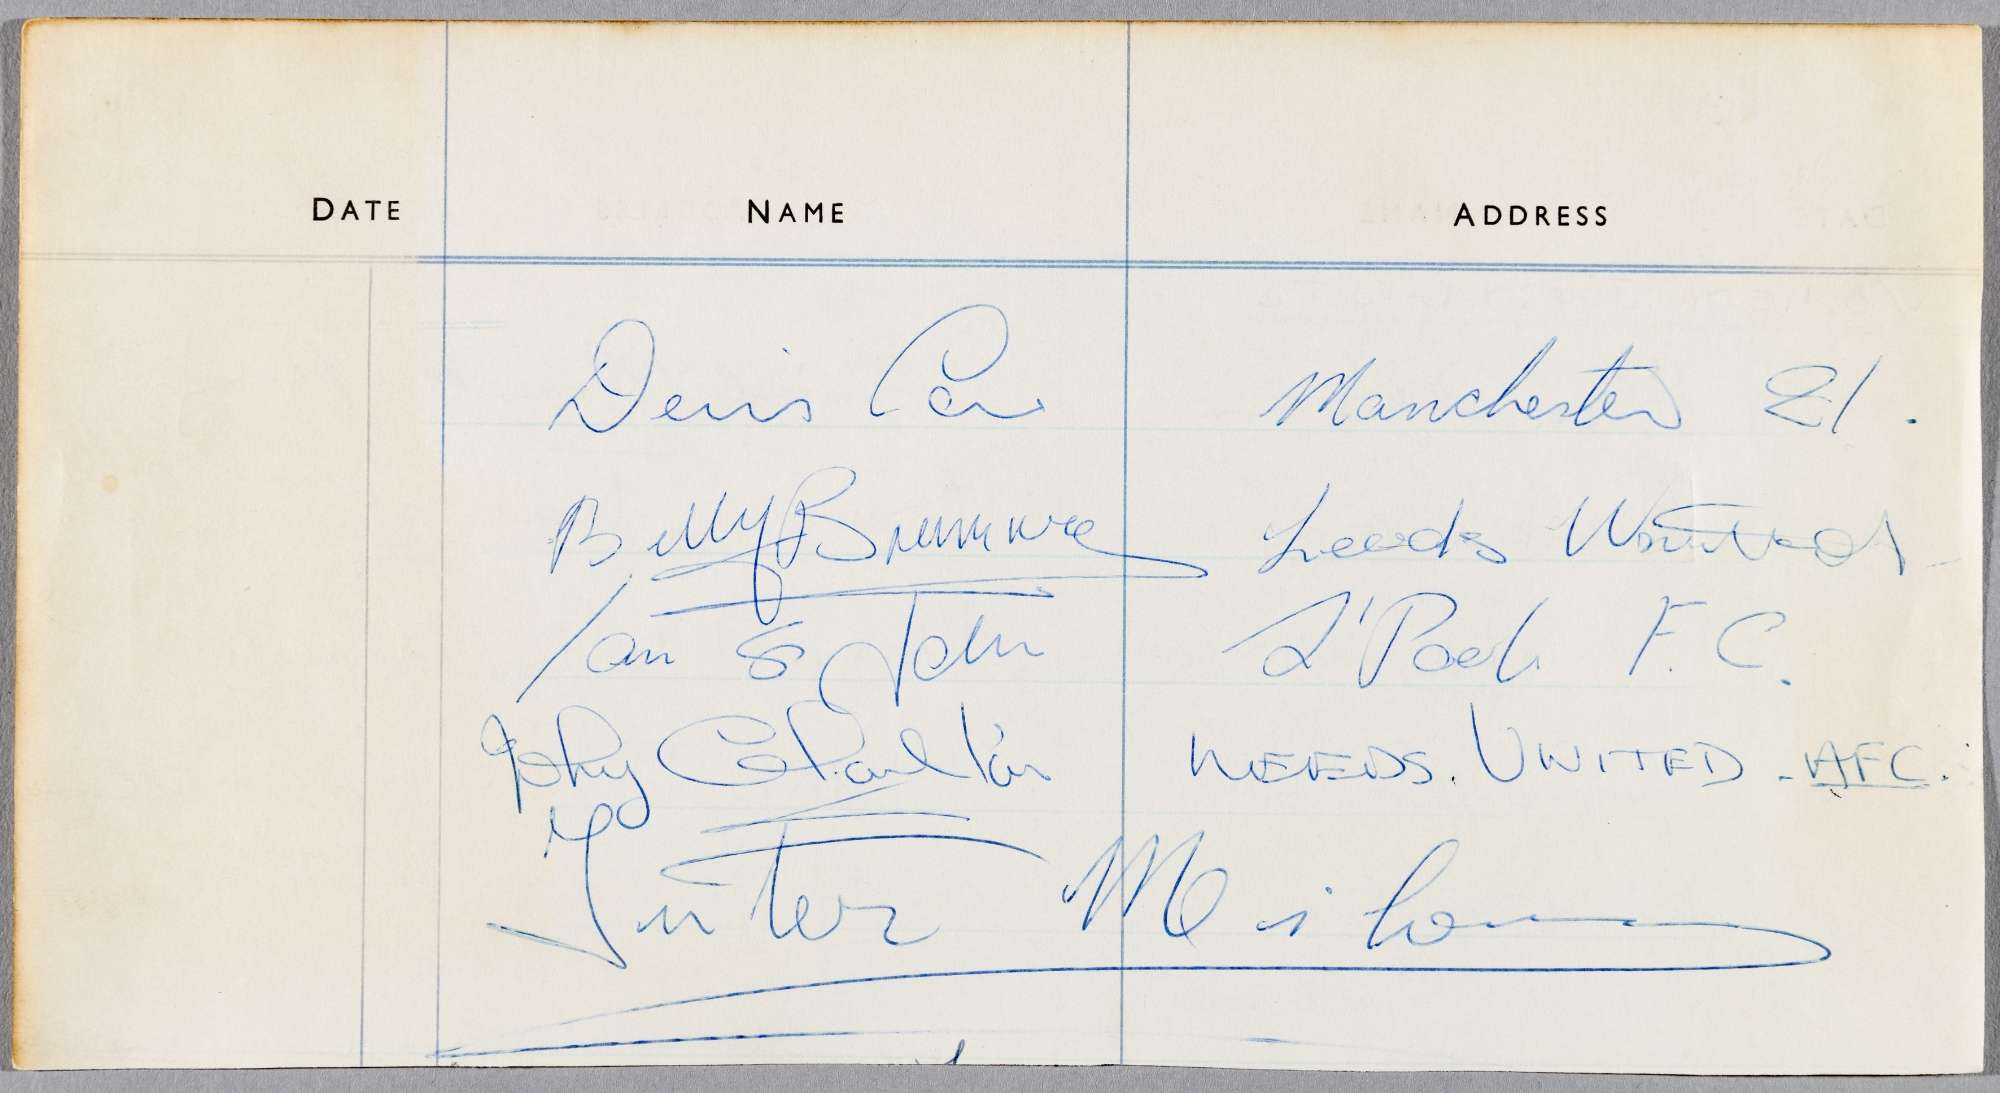 DATE NAME ADDRESS
Denis Law Manchester 21.
Billy Bremner Leeds United
Ian St John L'Pool F.C.
Jacky Charlton LEEDS. UNITED - AFC.
Inter Milan